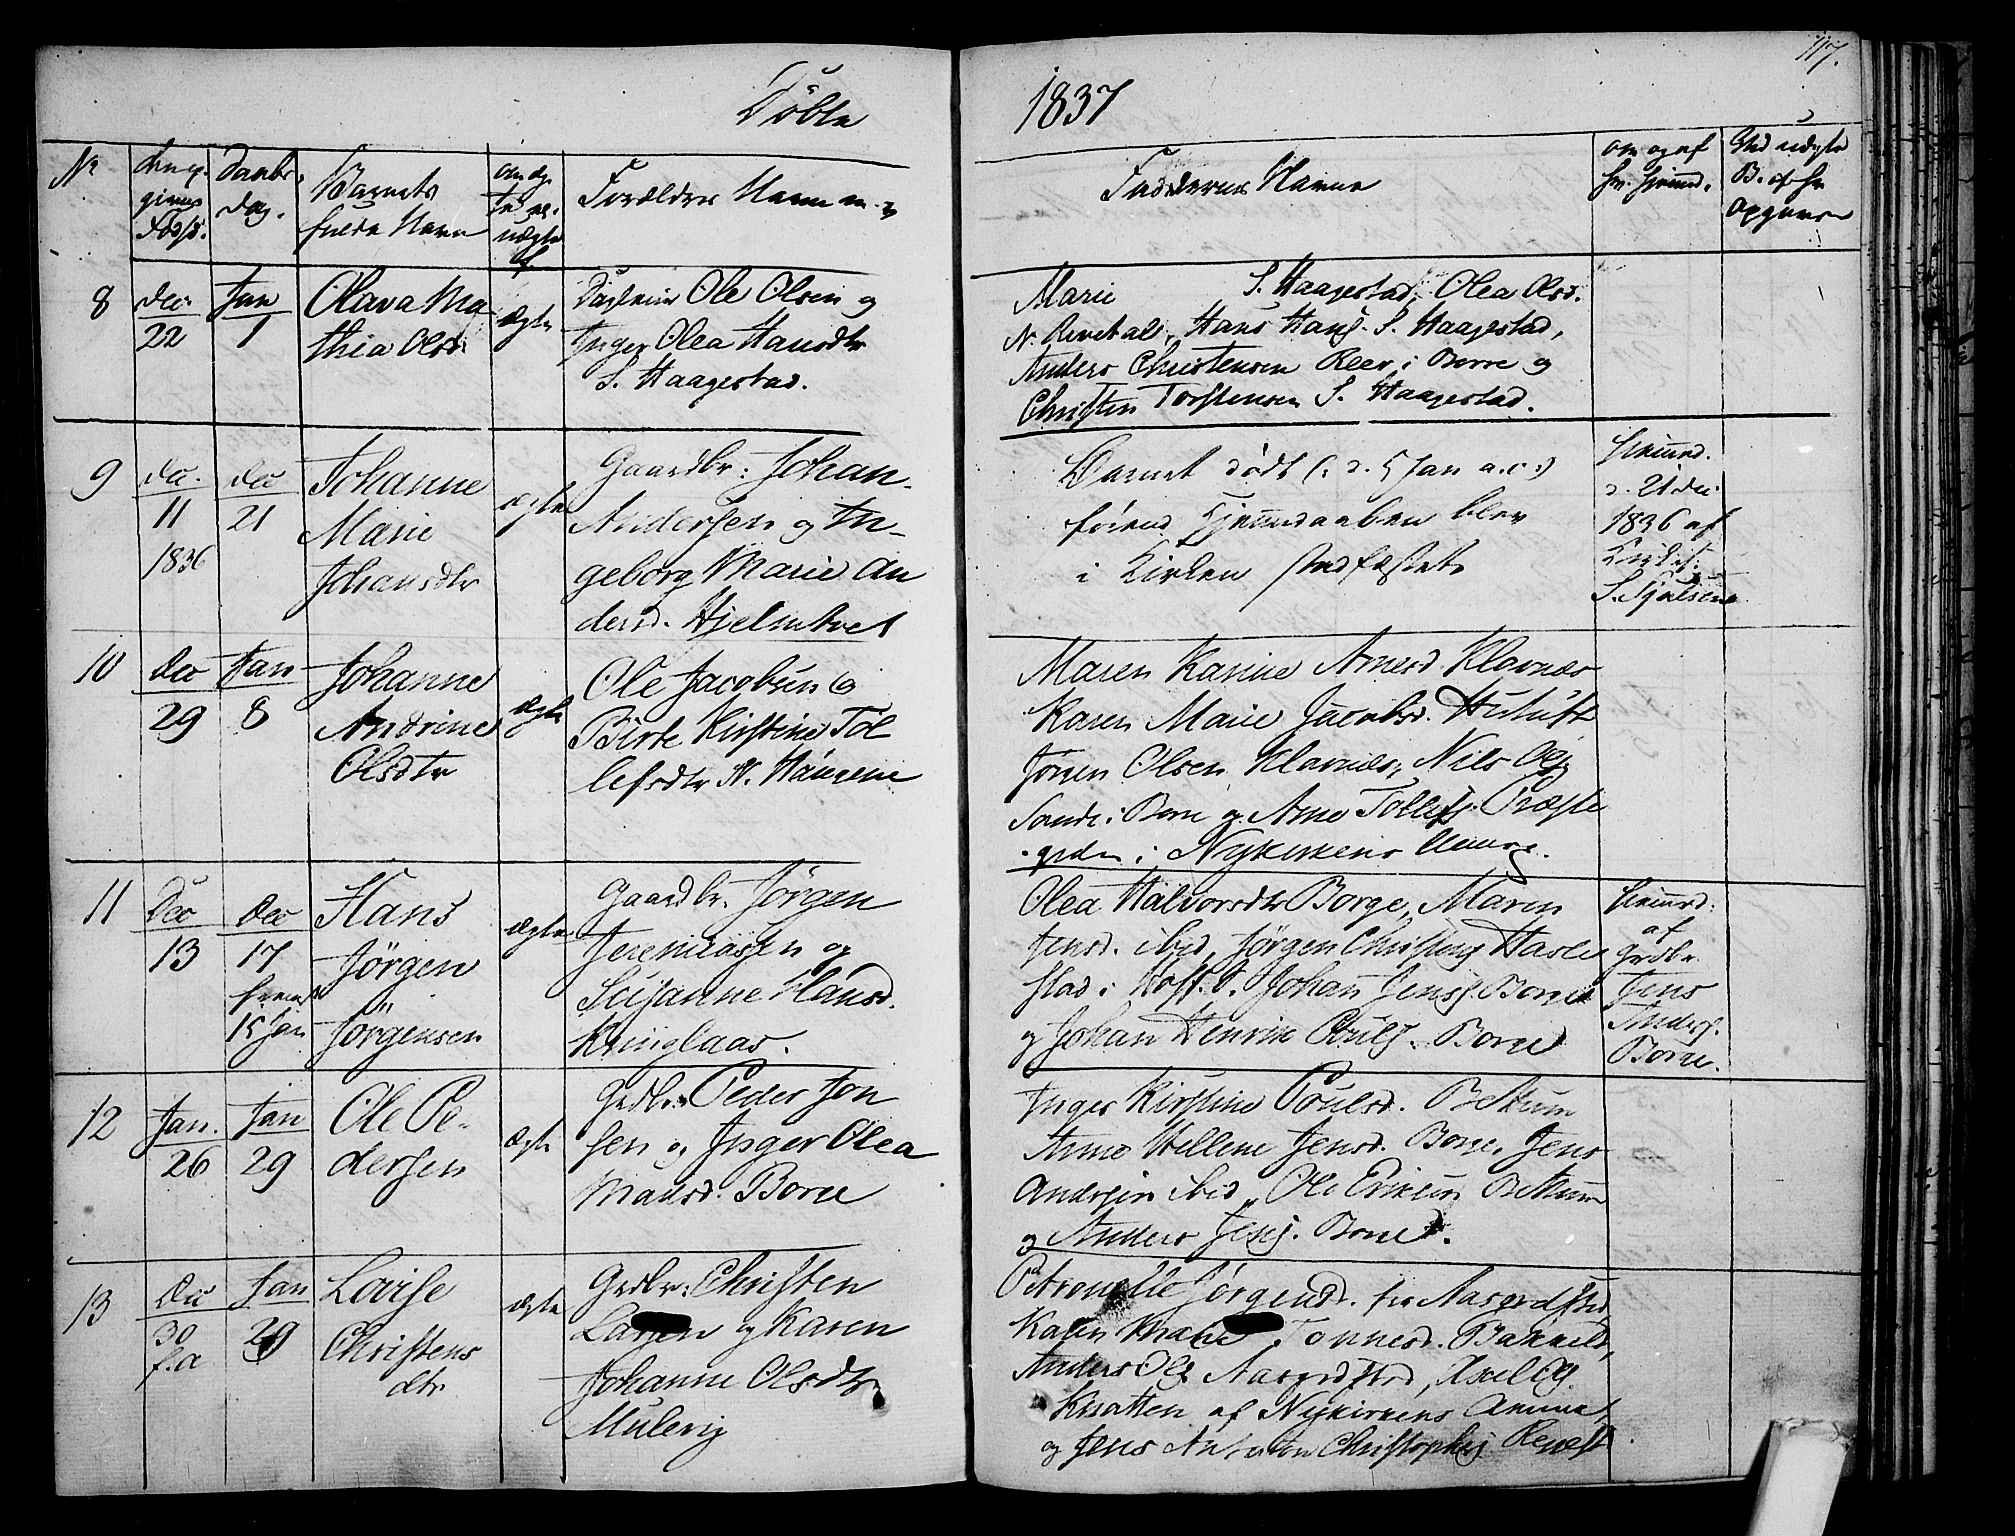 Döbte
1837
117.
No
Daabs
dag.
Barnets
fulde Navn
Forældres Navn
Faddernes Navne
om og af
8
Dec
22
Jan
1
Olava Ma
thia Olsd
ægte
Ole Olsen og
Inger Olea Hansdtr
S. Haagestad.
Marie S. Haagestad, Olea Olsd.
N. Revetal, Hans Hansj. S. Haagestad,
Anders Christensen Reer i Borre og
Christen Torstensen S. Haagestad.
9
Dec.
11
1836
Dec
21
Johanne
Marie
Johansdtr
ægte
Gaardbr: Johan
Andersen og In-
geborg Marie An
dersd. Hjelmtvet
Barnet død (: d. 5 Jan a.c:)
förend Hjemmedaaben blev
i Kirken stadfæstet
hjemmd.
d. 21 Dec.
1836 af
10
Dec
29
Jan
8
Johanne
Andrine
Olsdtr
ægte
Ole Jacobsen og
Birte Kirstine Tol
lefsdtr N.
Maren Karine Arnesd Klavnæs
Karen Marie Jacobsd.
Jörgen Olsen Klavnæs, Nils Olsj
Sande i Borre og Arne Tollefsj. Præste
grden i Nykirkens
11
Dec
13
Dec
17
15 Jan
Hans
Jörgen
Jörgensen
ægte
Gaardbr. Jörgen
Jeremiasen og
Susanne Hansd.
Kringlaas.
Olea Halvorsdtr Borge, Maren
Jensd. ibid, Jörgen Christensj Hasle
stad i Hoff. S. Johan Jensj. Borge
og Johan Henrik Poulsj. Borge
hjemmd:
af
Grdbr.
Jens
Andersj.
Borge.
12
Jan.
26
Jan
29
Ole Pe-
dersen
ægte
Grdbr. Peder Jen
sen og Inger Olea
Mansd. Borge
Inger Kirstine Poulsd. Bettum
Anne Hellene Jensd. Borge. Jens
Andersen ibid, Ole Eriksen Bettum
og Anders Jensj. Borge.
13
Dec
30
f.a
Jan
29
Lovise
Christens
dtr.
ægte
Grdbr: Christen
Larsen og Karen
Johanne Olsdtr
Mulevig
Petronelle Jörgensd. fra Aasgrdstrd
Karen Marie Tonnesd. Bakkeld,
Anders Olsj Aasgrdstrd, Axel Olsj.
Knatten af Nykirkens Annex,
og Jens Anton Christophersj